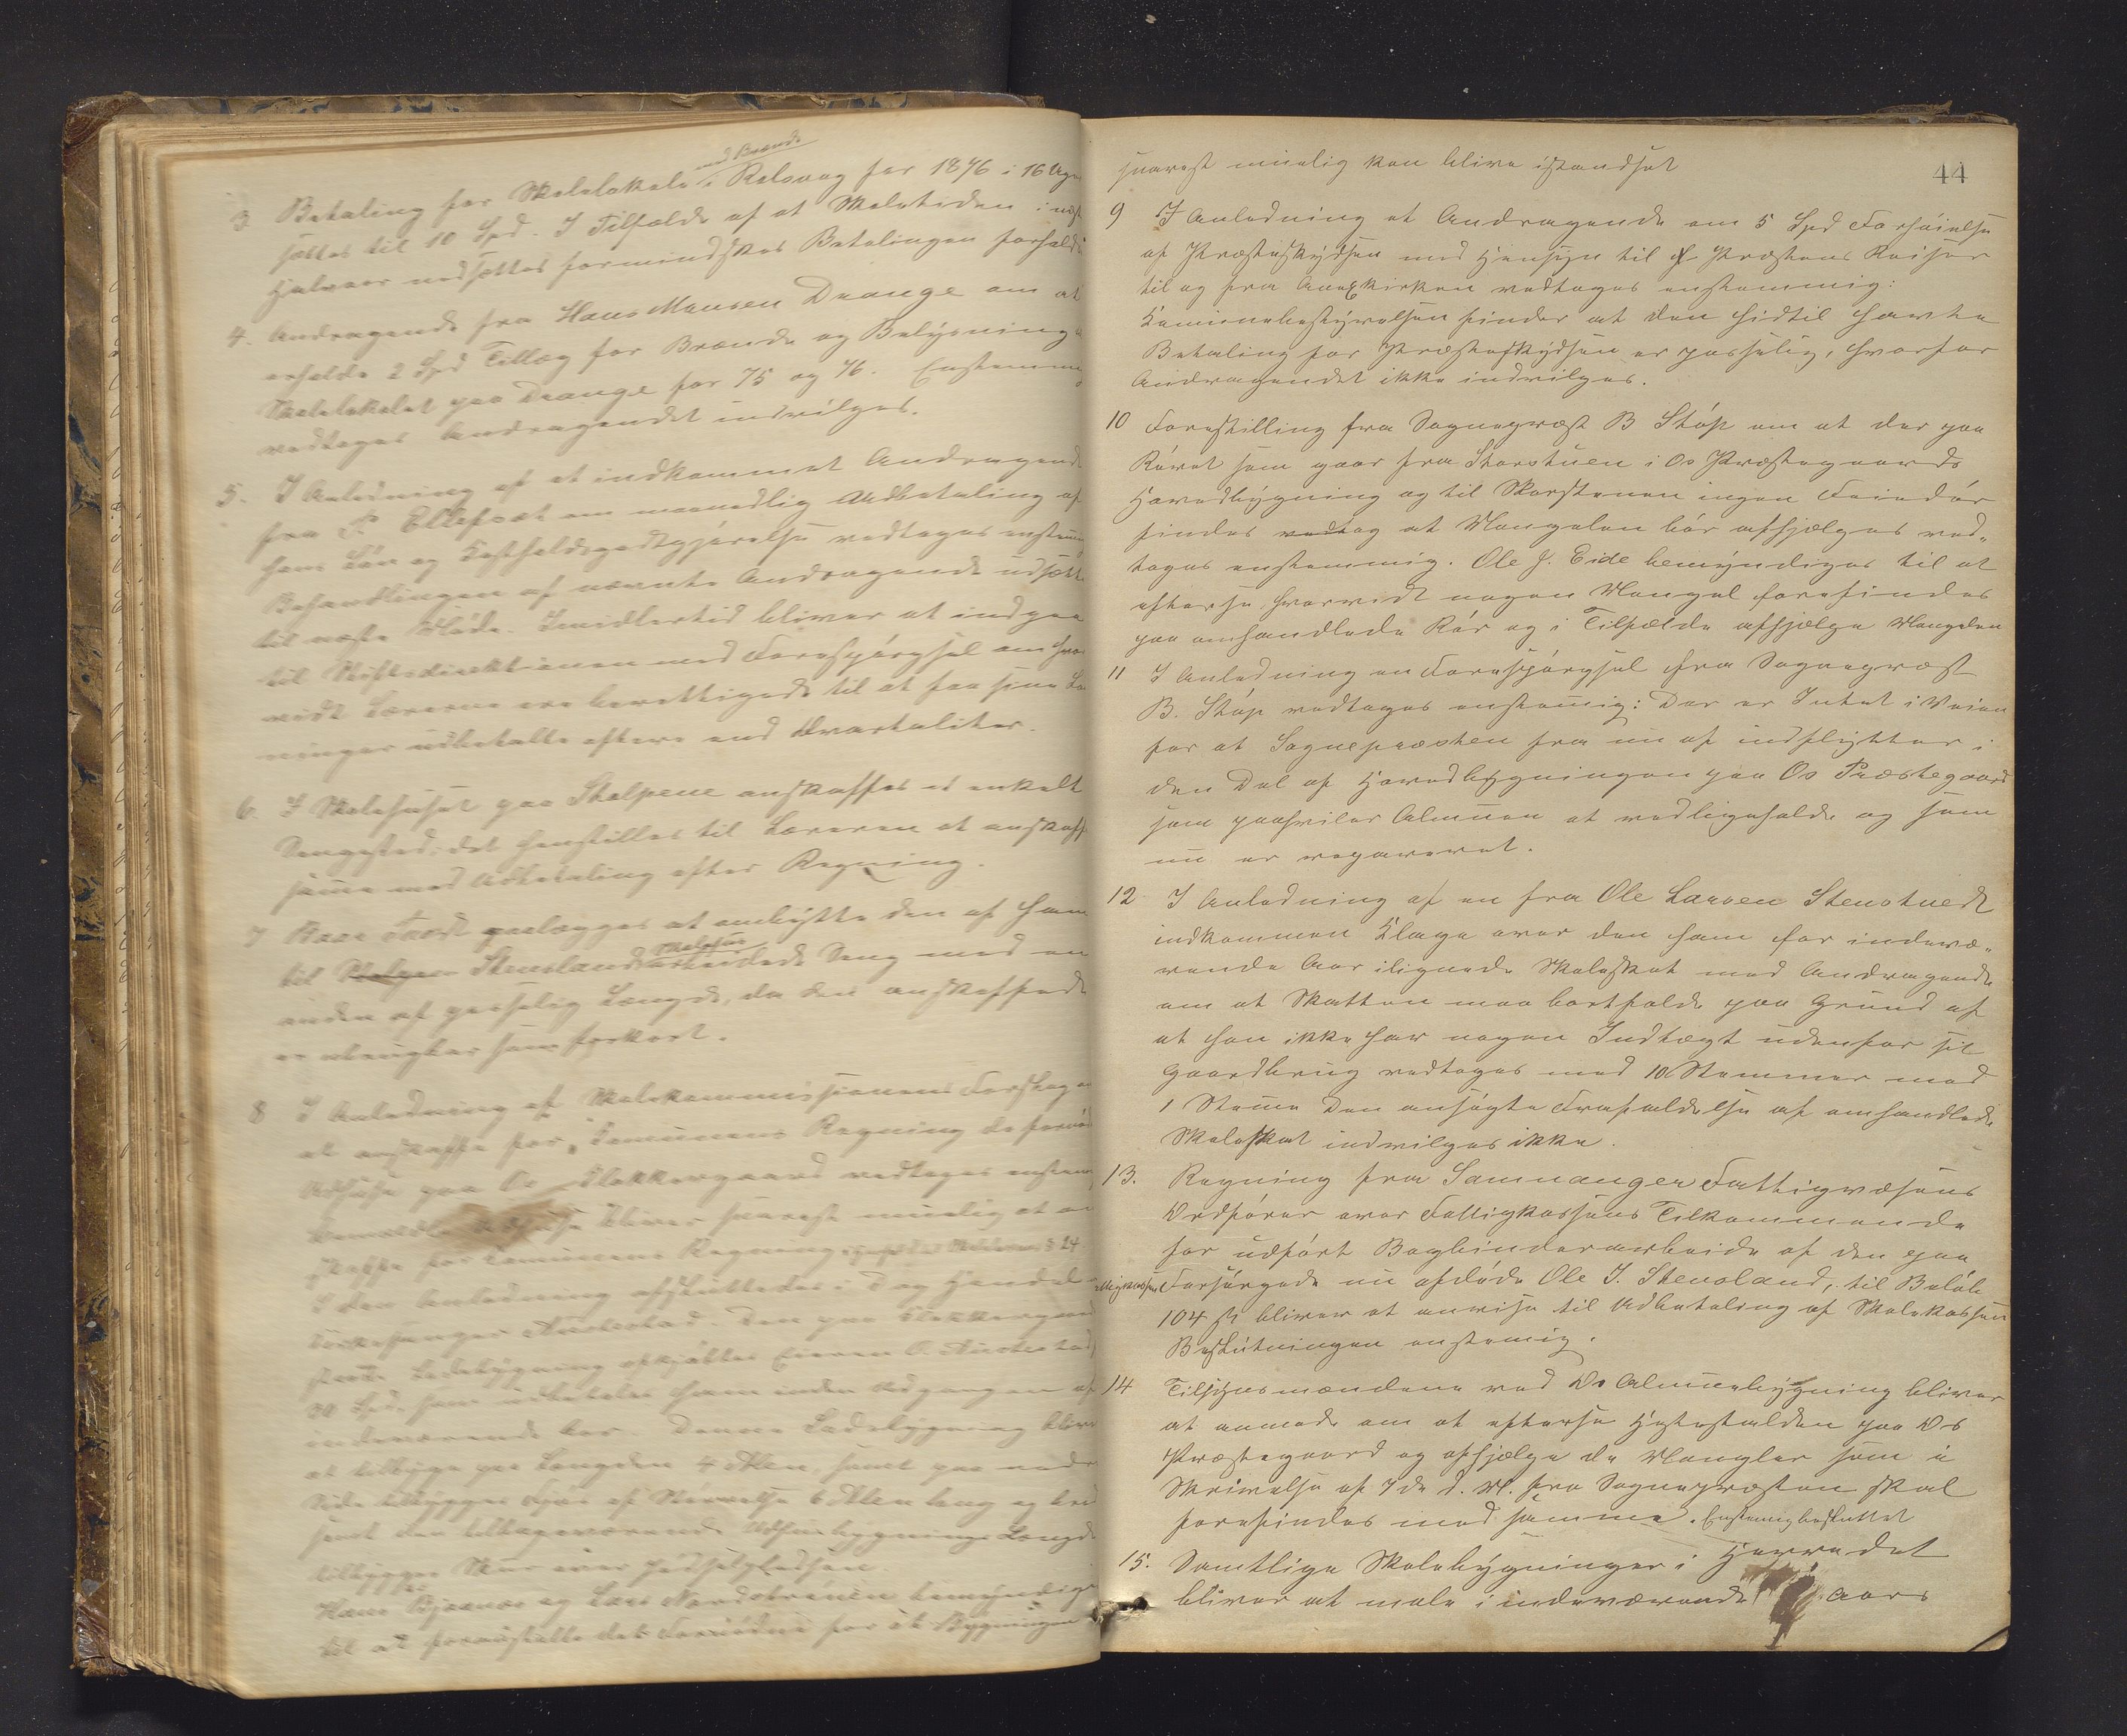 med Brænde
3 Betaling for Skolelokale i Røløvaag for 1876 i 16 Uger
sættes til 10 Spd. I Tilfælde af at Skoletiden i
Halvaar nedsættes formindskes Betalingen
4. Andragende fra Hans Monsen Drange om at
erholde 2 Spd Tillæg for Brænde og Belysning
Skolelokalet paa Drange for 75 og 76. Enstemmig
vedtages Andragendet indvilges.
5. I Anledning af et indkommet Andragende
fra P. Ellefsæt om maanedlig Udbetaling af
hans Løn og Kostholdsgodtgjørelse vedtages
Behandlingen af nævnte Andragende udsættes
til næste Møde. Imidlertid bliver at indgaa
til Stiftsdirektionen med Forespørgsel om hvor
vidt Lærerne ere berettigede til at faa sine Løn
ninger udbetalte oftere end Kvartaliter.
6. I Skolehuset paa Skolpene anskaffes et enkelt
Sengested. det henstilles til Læreren at anskaffe
samme mod Udbetaling efter Regning.
7 paalægges at ombytte den af ham
til Stensland Skolehus arbeidede Seng med en
anden af passelig Længde, da den anskaffede
er ubrugbar som forkort.
8 I Anledning af Skolekommissionens Forslag om
at anskaffe for Komunens Regning de fornødne
Udhuse paa Os Klokkergaard vedtages
bliver snarest muelig at an
skaffe for Komunens Regning
I den Anledning afsluttedes i Dag Handel
Kirkesanger Austestad. Den paa Klokkergaard
staaende Ladebygning afkjøbtes Eieren O. Austestad
30 Spd. som udbetales ham inden Udgangen af
indeværende Aar. Denne Ladebygning bliver
at tilbygge paa Længden 4 Alen, samt paa
Side tilbygges af Størrelse 6 Alen lang og
samt den tilbageværende Udhusbygnings Længde
tilbygges Skur over
Hans Bjørnæs og Lars Nordstrønen bemyndiges
til at foranstalte det Fornødne for at Bygningen
44
snarest muelig kan blive istandsat
9 I Anledning et Andragende om 5 Spd Forhøielse
af Præsteskydsen med Hensyn til Præstens Reiser
til og fra Anexkirken vedtoges enstemmig:
Komunebestyrelsen finder at den hidtil havte
Betaling for Præsteskydsen er passelig, hvorfor
Andragendet ikke indvilges.
10 Forestilling fra Sogneprest B Støp om at der paa
Røret som gaar fra Storstuen i Os Præstegaards
Hovedbygning og til Skorstenen ingen Feiedør
findes og at Mangelen bør afhjælpes ved„
tages enstemmig. Ole J. Eide bemyndiges til at
efterse hvorvidt nogen Mangel forefindes
paa omhandlede Rør og i Tilfælde afhjælpe Mangelen
11 I Anledning en Forespørgsel fra Sogneprest
B. Støp vedtages enstemig: Der er Intet i Veien
for at Sognepræsten fra nu af indflytter i
den Del af Hovedbygningen paa Os Præstegaard
som paahviler Almuen at vedligeholde og som
nu er repareret.
12 I Anledning af en fra Ole Larsen Stenstvedt
indkommen Klage over den ham for indevæ„
rende Aar ilignede Skoleskat med Andragende
om at Skatten maa bortfalde paa Grund af
at han ikke har nogen Indtægt udenfor sit
Gaardbrug vedtoges med 10 Stemmer mod
1 Steme Den ansøgte Frafaldelse af omhandlede
Skoleskat indvilges ikke.
13. Regning fra Samnanger Fattigvæsens
Ordfører over Fattigkassens Tilkommende
for udført Bogbinderarbeide af den paa
Fattigkassen Forsørgede nu afdøde Ole J. Stensland, til Beløb
104 ß bliver at anvise til Udbetaling af Skolekassen
Beslutningen enstemig.
14 Tilsynsmændene ved Os Almuebygning bliver
at anmode om at efterse Hestestalden paa Os
Præstegaard og afhjælpe de Mangler som i
Skrivelse af 7de d. M. fra Sognepræsten skal
forefindes med samme. Enstemig besluttet
15. Samtlige Skolebygninger i Herredet
bliver at male i indeværende Aars